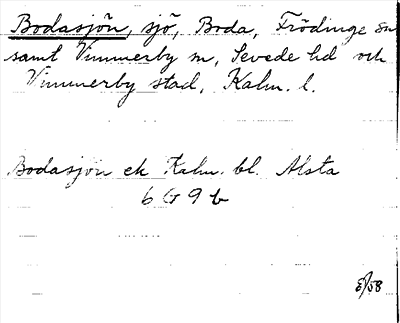 Bodasjön, sjö, Boda, Frödinge sn
samt Vimmerby m, Sevede hd och
Vimmerby stad, Kalm. l.
Bodasjön ek Kalm. bl. Alsta
6 G 9 b
E/58